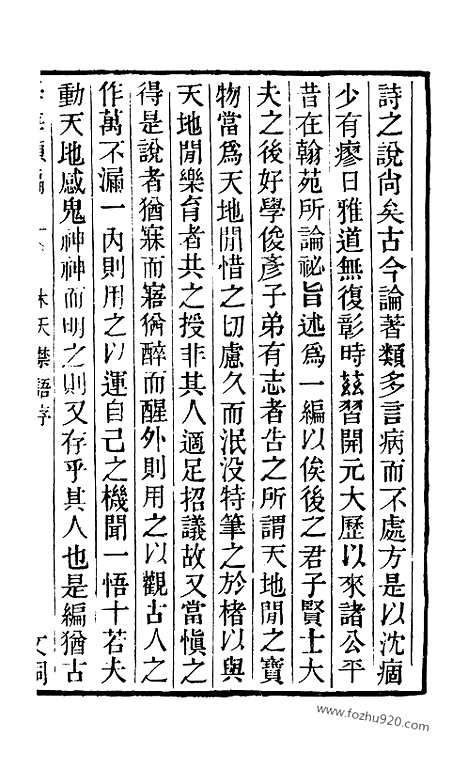 詩之說尚矣古今論著類多言病而不處方是以沈痼
少有瘳日雅道無復彰時茲習開元大歷以來諸公平
昔在翰苑所論祕旨述爲一編以俟後之君子賢士大
夫之後好學俊彥子弟有志者告之所謂天地閒之寶
物當爲天地閒惜之切慮久而泯没特筆之於楮以與
天地閒樂育者共之授非其人適足招議故又當愼之
得是說者猶寐而寤猶醉而醒外則用之以觀古人之
作萬不漏一內則用之以運自己之機聞一悟十若夫
動天地感鬼神神而明之則又存乎其人也是編猶古
木天禁語序
www.fozhu920.com